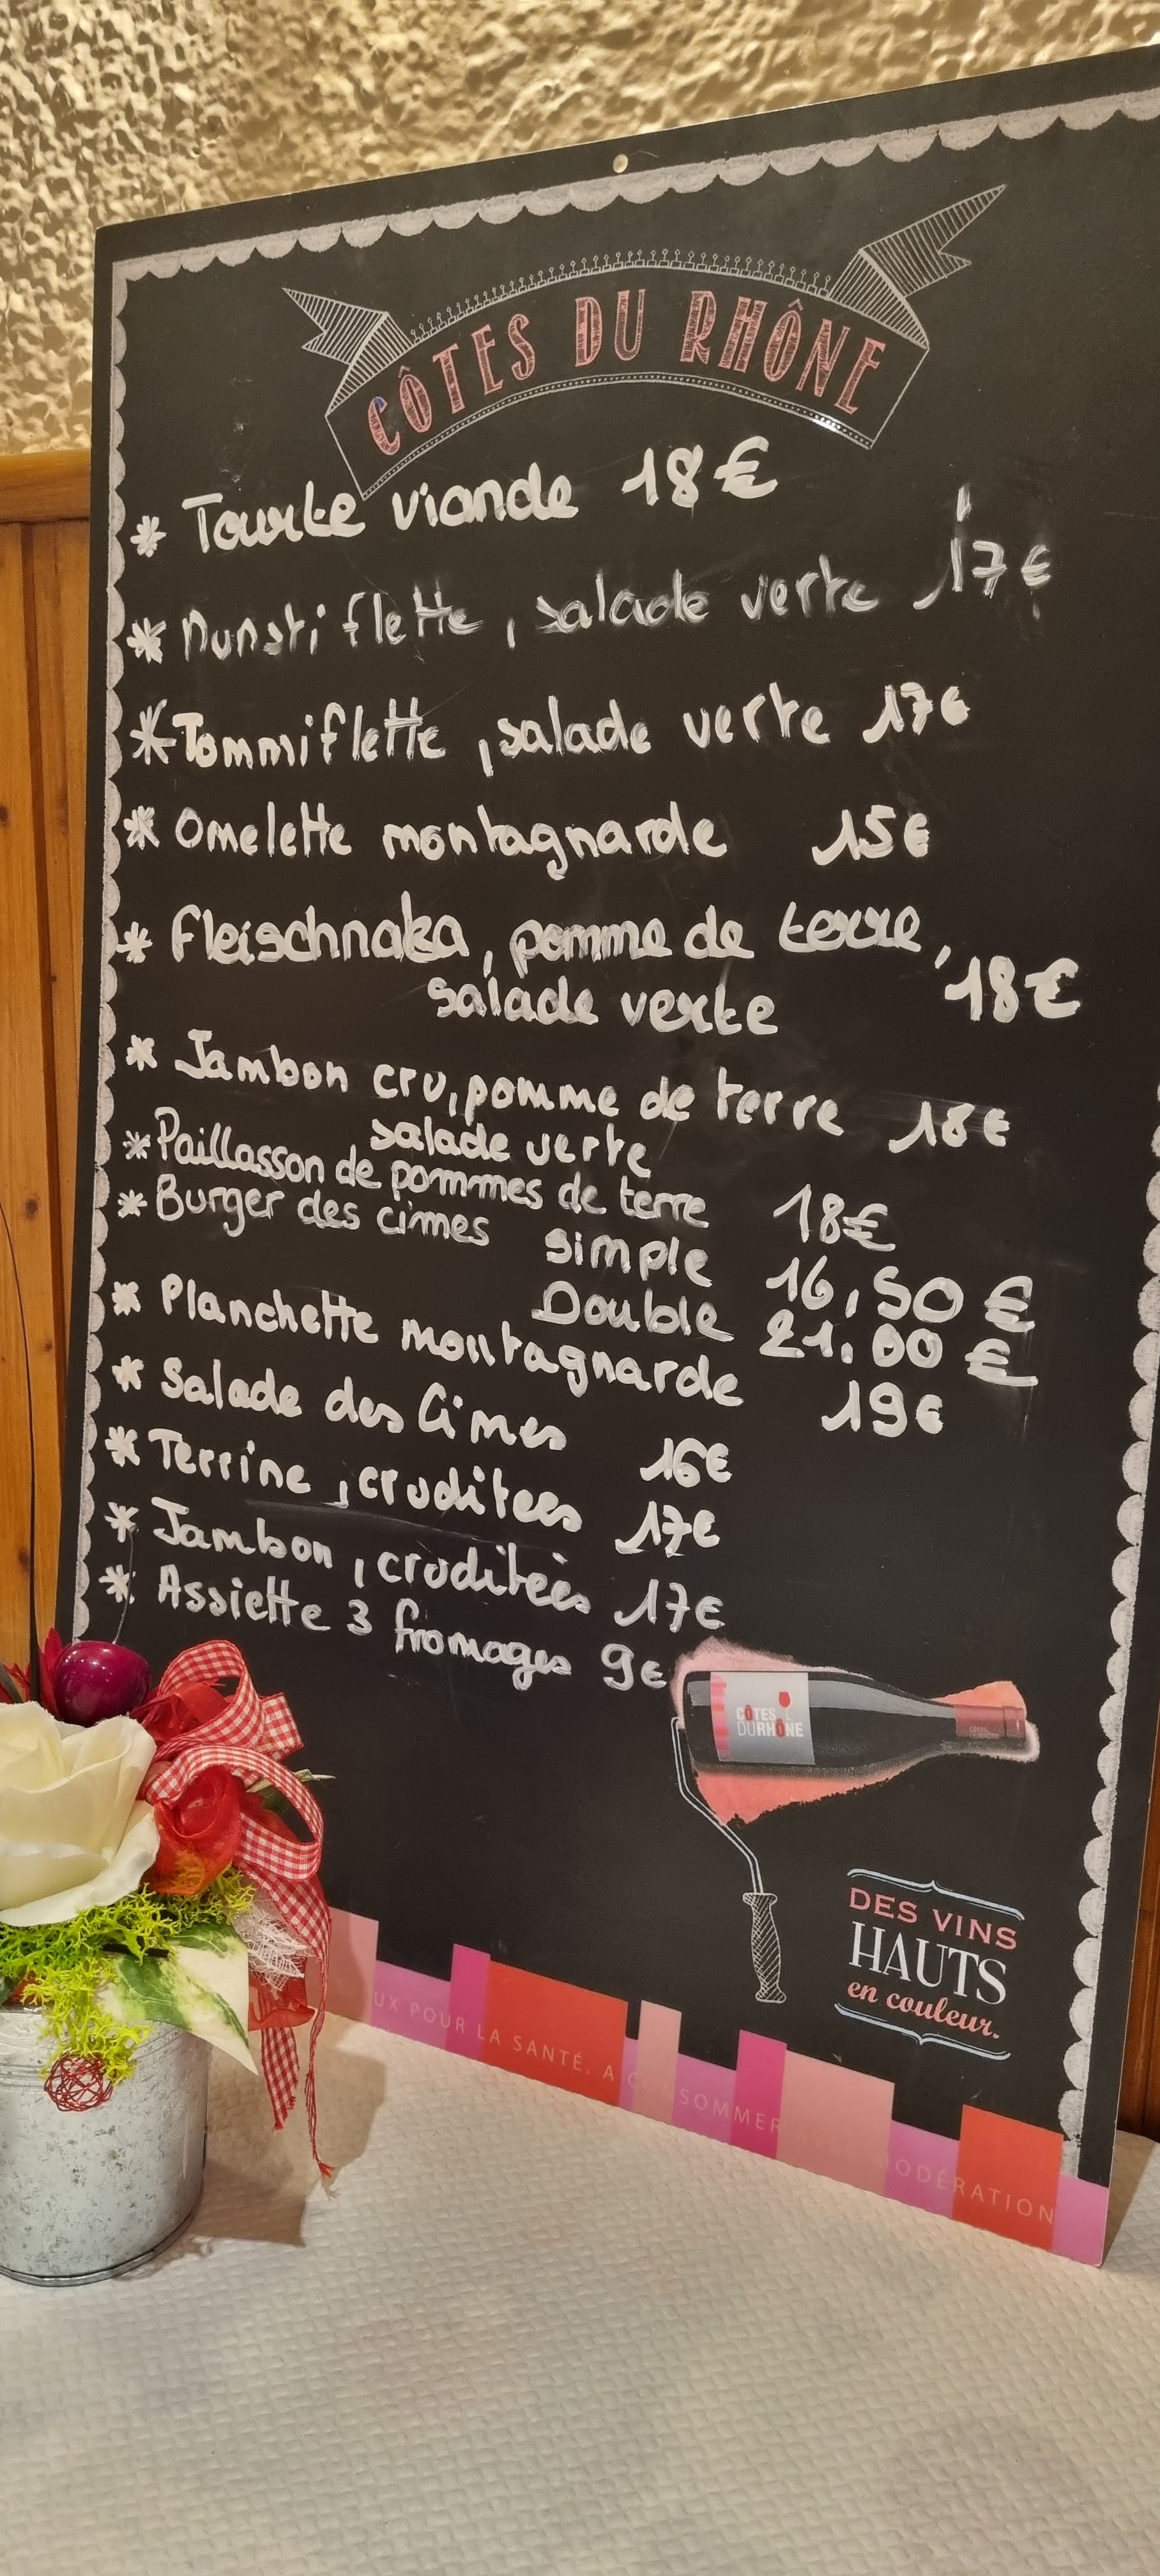 CÔTES DU RHÔNE
* Tourte viande 18€
* Munstiflette, salade verte 17€
* Tommiflette, salade verte 17€
* Omelette montagnarde 15€
* Fleischnaka, pomme de terre,
salade verte 18€
* Jambon cru, pomme de terre 18€
salade verte
* Paillasson de pommes de terre 18€
* Burger des cimes simple 16,50 €
Double 21.00 €
* Planchette montagnarde 19€
* Salade des Cimes 16€
* Terrine, cruditees 17€
* Jambon, cruditées 17€
* Assiette 3 fromages 9€
CÔTES
DURHÔNE
DES VINS
HAUTS
en couleur.
UX POUR LA SANTÉ. A CONSOMMER MODÉRATION